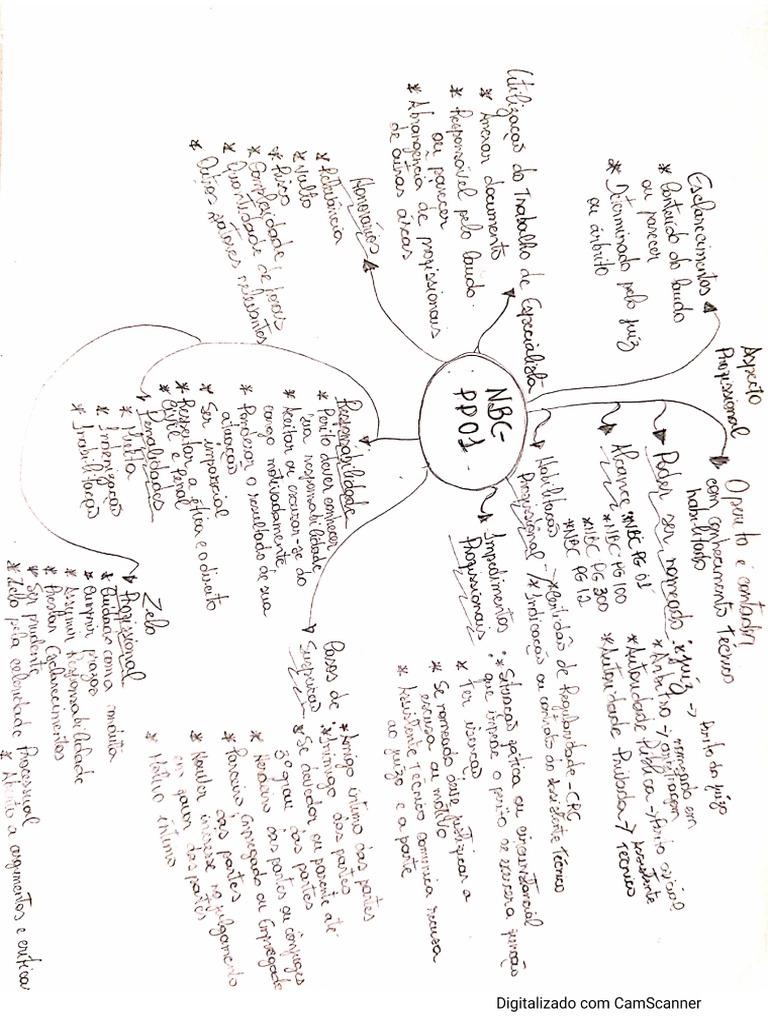 NBC-
PP01
Aspecto
Profissional
O perito é contador
com conhecimento Técnico
habilitado
Poder ser nomeado:
* juiz → Perito do juízo
* Árbitro →
nomeado em
arbitragem
* Autoridade Pública → Perito oficial
* Autoridade Privada → Assistente
Técnico
Alcance
* NBC PG 01
* NBC PG 100
* NBC PG 300
* NBC PG 12
Habilitação
Profissional
* Certidão de Regularidade - CRC
* Indicação ou contrato do Assistente Técnico
Impedimentos
Profissionais
* Situação fática ou circunstancial
que impede o perito de exercer a função
* Ter isenção
* Se nomeado deve justificar a
escusa ou motivo
* Assistente Técnico comunica recusa
ao juízo e a parte
Casos de
Suspeição
* Amigo íntimo das partes
* Inimigo das partes
* Se devedor ou parente até
3º grau das partes
* Herdeiro das partes ou cônjuges
* Parceiro, Empregado ou Empregador
das partes
* Houver interesse no julgamento
em favor das partes
* Motivo íntimo
Responsabilidade
* Perito dever conhecer
sua responsabilidade
* Aceitar ou escusar-se do
cargo motivadamente
* Ponderar o resultado de sua
atuação
* Ser imparcial
* Respeitar a ética e o direito
* Civil e Penal
Penalidades
* Multa
* Indenização
* Inabilitação
Zelo
Profissional
* Cuidado com a conduta
* Cumprir prazos
* Assumir Responsabilidade
* Prestar Esclarecimentos
* Ser prudente
* Zelo pela celeridade Processual
* Atento a argumentos e críticas
Honorários
* Relevância
* Vulto
* Risco
* Complexidade
* Quantidade de horas
* Outros fatores relevantes
Utilização do Trabalho de Especialista
* Anexar documento
* Responsável pelo laudo
ou parecer
* Abrangência de profissionais
de outras áreas
Esclarecimentos
* Conteúdo do laudo
ou parecer
* Determinado pelo juiz
ou árbitro
Digitalizado com CamScanner